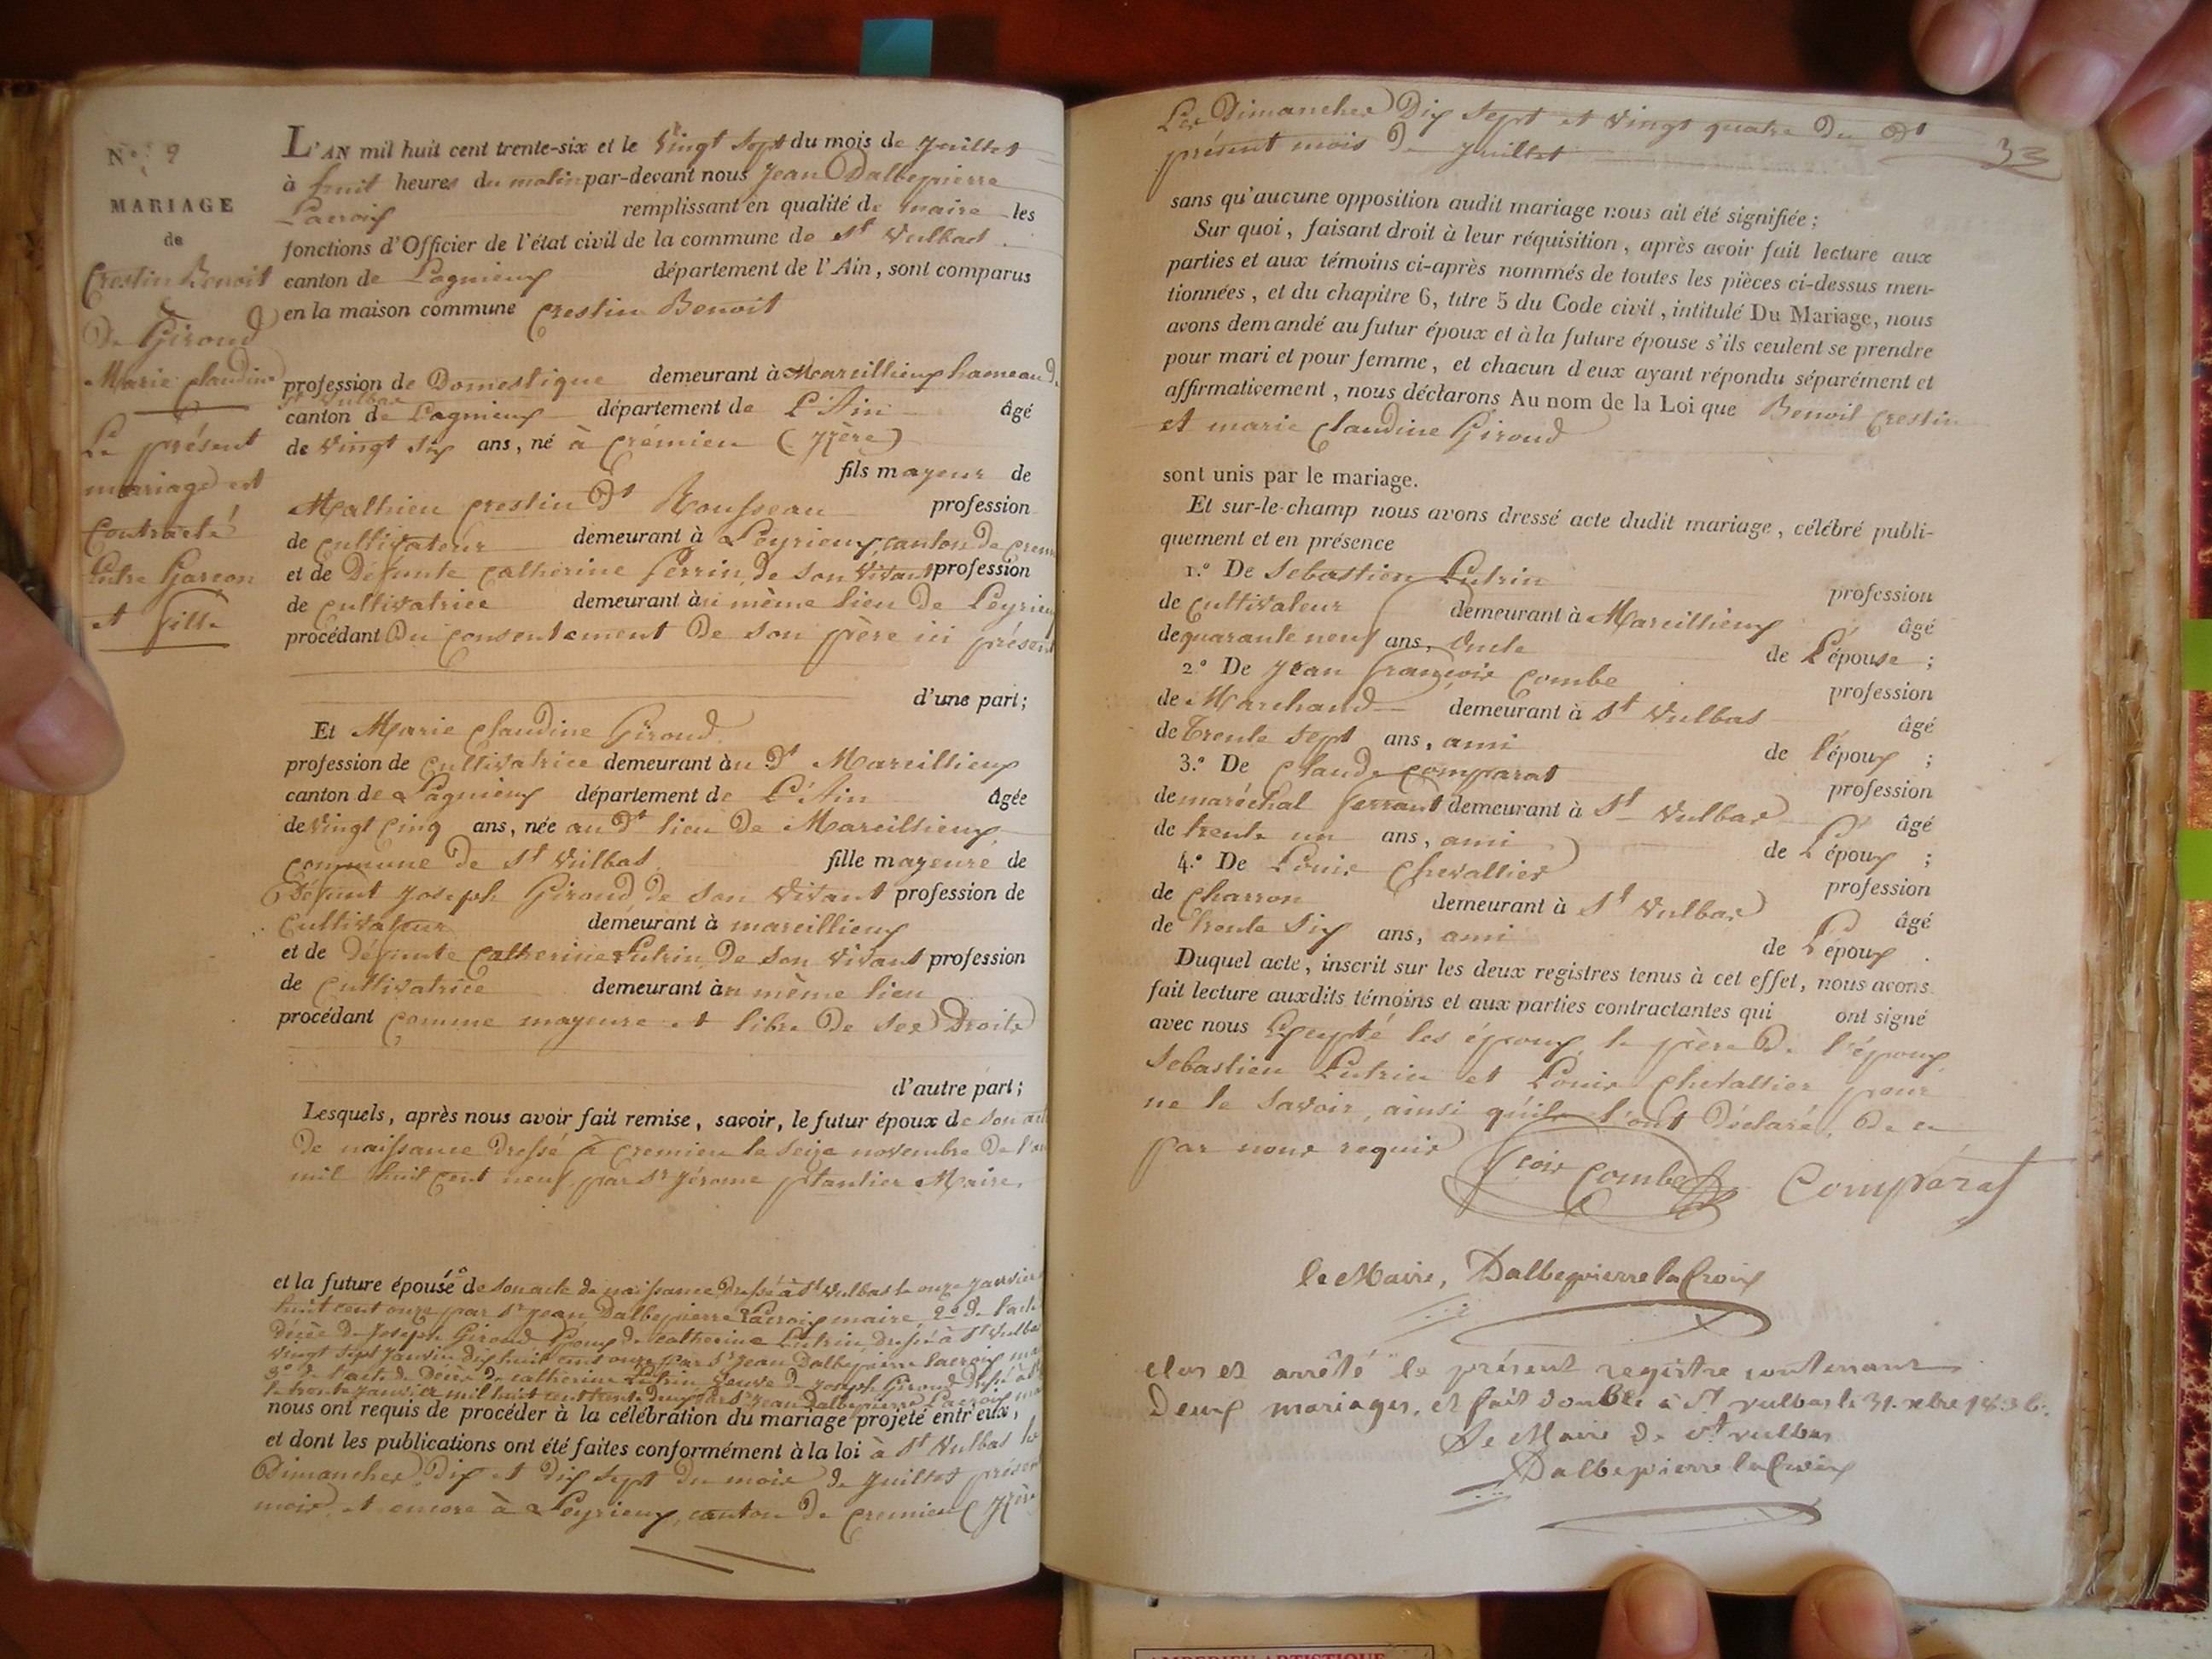 N.º 2
MARIAGE
de
Crestin Benoit
&
De Giroud
Marie Claudine
Le présent
mariage est
Contracté
Entre Garçon
et fille
L'AN mil huit cent trente-six et le vingt sept du mois de juillet
à huit heures du matin par-devant nous Jean Dalbepierre
Lacroix remplissant en qualité de maire les
fonctions d'Officier de l'état civil de la commune de St Vulbas
canton de Lagnieux département de l'Ain, sont comparus
en la maison commune Crestin Benoit
profession de Domestique demeurant à Marcillieux hameau de
St Vulbas
canton de Lagnieux département de L'Ain âgé
de vingt six ans, né à Crémieu (Izère)
fils mayeur de
Mathieu Crestin Dt Rousseau profession
de cultivateur demeurant à Leyrieux, canton de Crem
et de Défunte Catherine Perrin, de son vivant profession
de cultivatrice demeurant au même lieu de Leyrieux
procédant Du consentement de son père ici présent
d'une part;
Et Marie Claudine Giroud
profession de cultivatrice demeurant au dt Marcillieux
canton de Lagnieux département de L'Ain âgée
de vingt cinq ans, née au dt lieu de Marcillieux,
commune de St Vulbas fille mayeure de
Défunt Joseph Giroud, de son vivant profession de
Cultivateur demeurant à marcillieux
et de défunte Catherine Lutrin, de son vivant profession
de cultivatrice demeurant au même lieu
procédant comme mayeure et libre de ses Droits
d'autre part;
Lesquels, après nous avoir fait remise, savoir, le futur époux de son acte
de naissance dressé à Cremieu le seize novembre de l'an
mil huit cent neuf, par Sr Jérome Plantier Maire,
et la future épouse 1º de son acte de naissance dressé à St Vulbas le onze janvier
huit cent onze par Sr Jean Dalbepierre Lacroix maire, 2º de l'acte
décès de Joseph Giroud Epoux de Catherine Lutrin, dressé à St Vulbas
vingt sept janvier dix huit cent onze par Sr Jean Dalbepierre Lacroix ma
3º de l'acte de Décès de Catherine Lutrin veuve de Joseph Giroud dressé à St
le trente janvier mil huit cent trente deux par Sr Jean Dalbepierre Lacroix ma
nous ont requis de procéder à la célébration du mariage projeté entr'eux,
et dont les publications ont été faites conformément à la loi à St Vulbas les
Dimanches Dix et Dix sept du mois de juillet présent
mois, et encore à Leyrieux, canton de Cremieu (Izère
Les Dimanches Dix sept et vingt quatre du dt
présent mois de juillet
33
sans qu'aucune opposition audit mariage nous ait été signifiée;
Sur quoi, faisant droit à leur réquisition, après avoir fait lecture aux
parties et aux témoins ci-après nommés de toutes les pièces ci-dessus men-
tionnées, et du chapitre 6, titre 5 du Code civil, intitulé Du Mariage, nous
avons demandé au futur époux et à la future épouse s'ils veulent se prendre
pour mari et pour femme, et chacun d'eux ayant répondu séparément et
affirmativement, nous déclarons Au nom de la Loi que Benoit Crestin
et marie Claudine Giroud
sont unis par le mariage.
Et sur-le-champ nous avons dressé acte dudit mariage, célébré publi-
quement et en présence
1.º De Sebastien Lutrin profession
de cultivateur demeurant à Marcillieux âgé
de quarante neuf ans, oncle de L'épouse ;
2.º De Jean françois Combe profession
de Marchand demeurant à St Vulbas âgé
de trente sept ans, ami de l'époux ;
3.º De Claude Comparat profession
de maréchal ferrant demeurant à St Vulbas âgé
de trente un ans, ami de L'époux ;
4.º De Louis Chevallier profession
de Charron demeurant à St Vulbas âgé
de trente six ans, ami de L'époux.
Duquel acte, inscrit sur les deux registres tenus à cet effet, nous avons
fait lecture auxdits témoins et aux parties contractantes qui ont signé
avec nous Excepté les époux, le père de l'époux,
Sebastien Lutrin et Louis Chevallier pour
ne le savoir, ainsi qu'ils l'ont déclaré, de ce
par nous requis
fçois Combe Comparat
le Maire, Dalbepierre la Croix
clos et arrêté le présent registre contenant
Deux mariages, et fait double à St Vulbas le 31. xbre 1836.
Le Maire de St Vulbas
Dalbepierre la Croix
AMBERIEU ARTISTIQUE